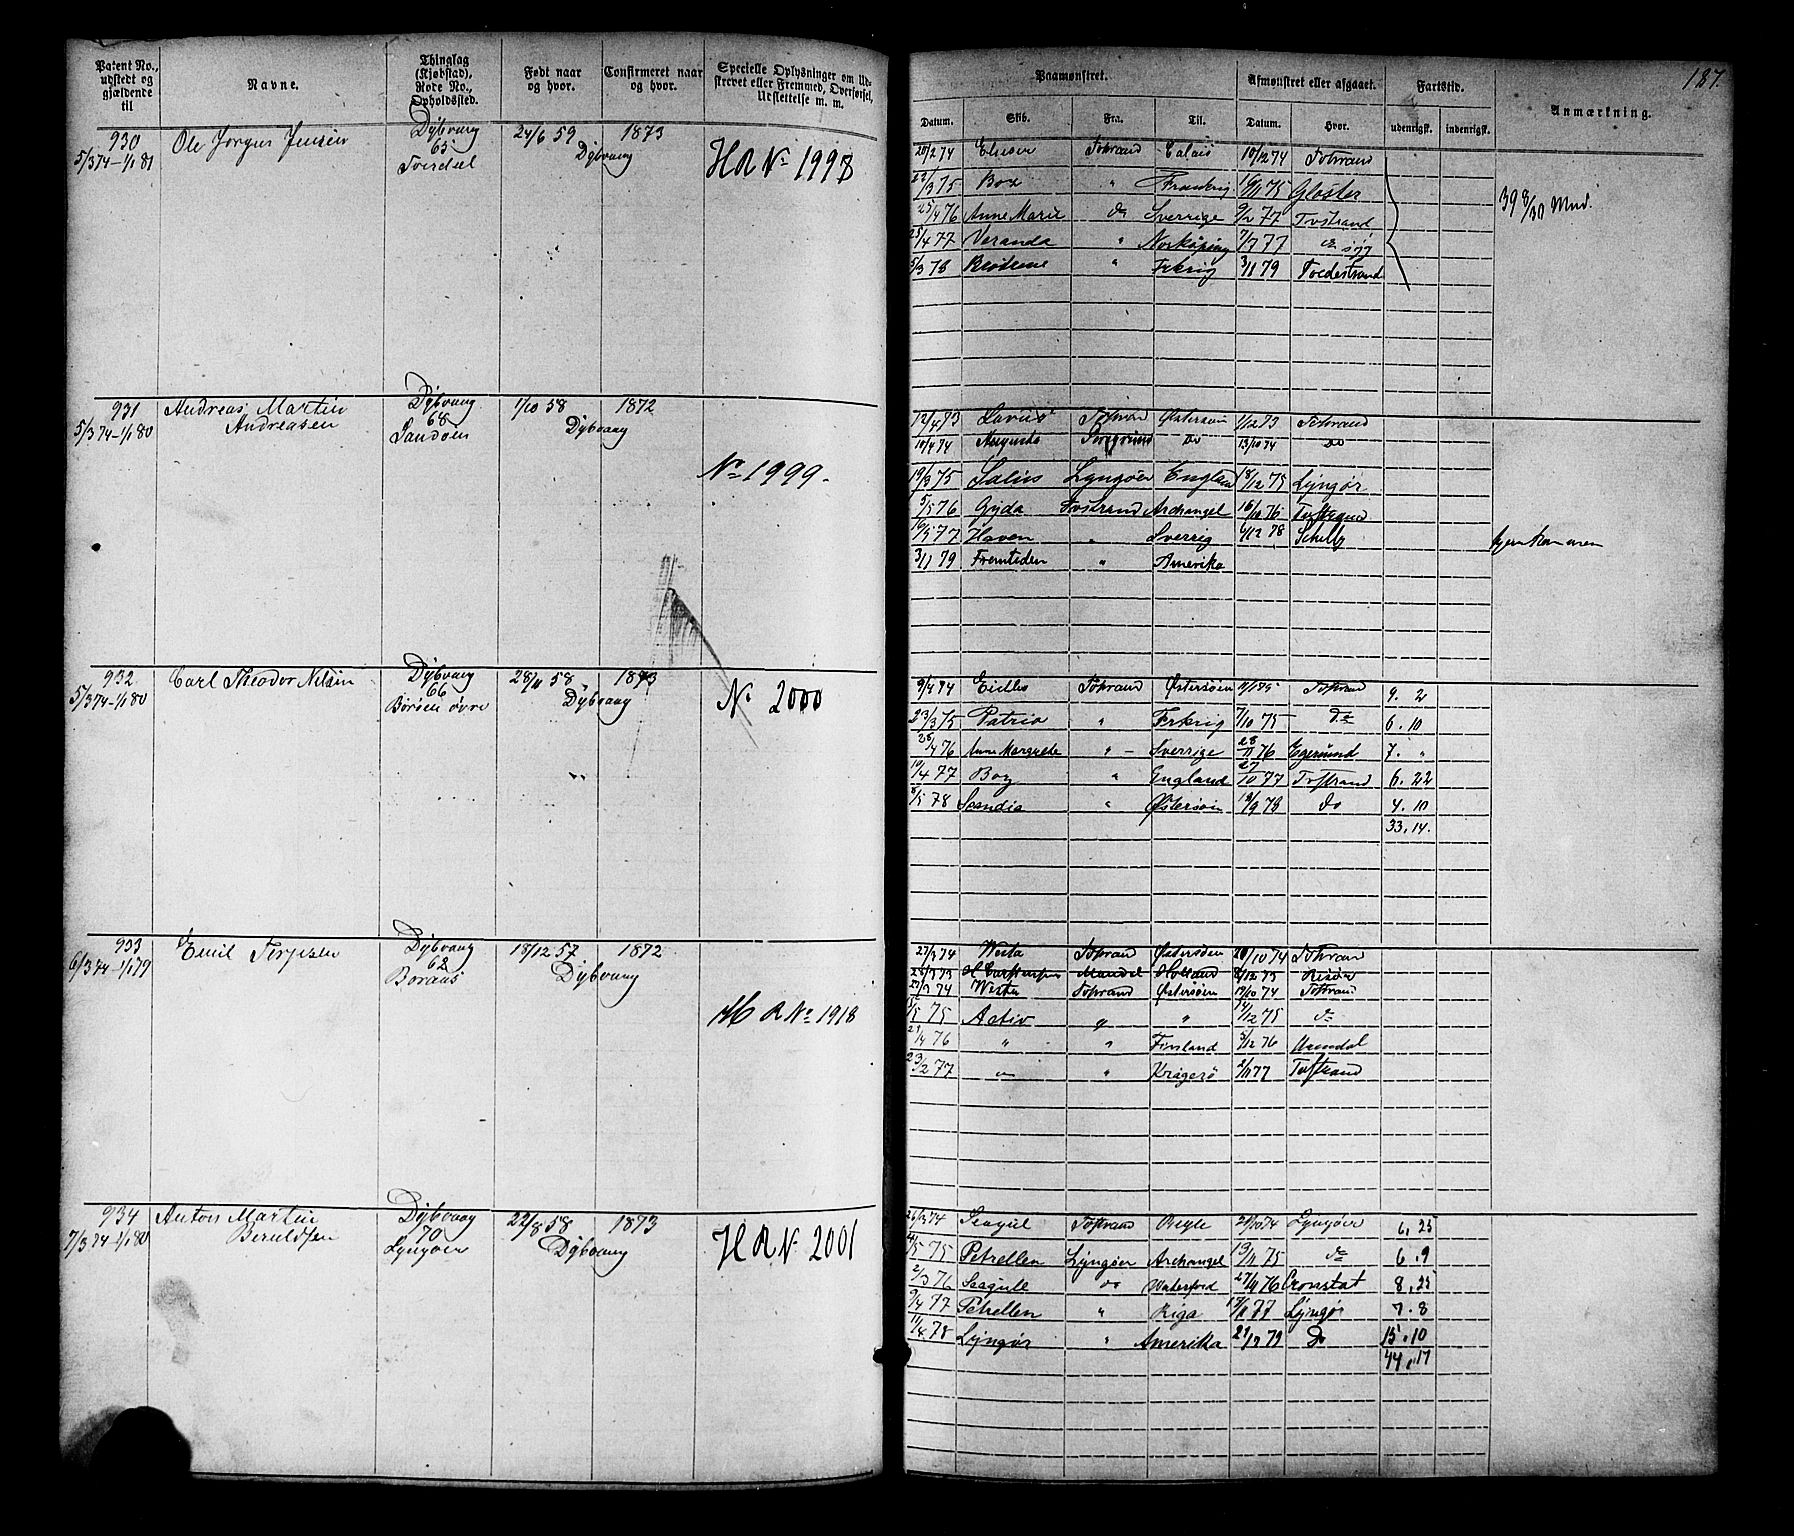 Patent No., udstedt og gjældende til
Navne.
Thinglag (Kjøbstad), Rode No., Opholdssted.
Født naar og hvor.
Confirmeret naar og hvor.
Specielle Oplysninger om Udskrevet eller Fremmed, Overførsel, Udslettelse m. m.
Paamønstret.
Afmønstret eller afgaaet.
Fartstid.
Anmærkning.
187.
Datum.
Skib.
Fra.
Til.
Datum.
Hvor.
udenrigsk.
indenrigsk.
930
5/3 74-1/1 81
Ole Jørgen Jensen
Dybvaag
65
24/6 59
1873
Dybvaag
HR No 1997
20/2 74
Calais
10/12 74
Tostrand
22/3 75
Frankrig
75 Gloster
25/4 76 Anne Marie do Sverrige 9/2 77 Tvstrand
25/4 77 Veranda " Norkøping 7/7 77 do
5/3 78 " Frkrig 3/1 79 Tvedestrand
39 8/30 Mnd.
931
5/3 74-1/1 80
Andreas Martin
Andreasen
Dybvaag
68
Sandøen
1/10 58
1872
Dybvaag
No 1999.
12/4 73 Østersøen 1/12 73 Tostrand
10/4 74 Augusta Do 13/10 74 Do
19/3 75 Lyngøer England 18/12 75 Lyngør
5/5 76 Gyda Tvstrand Archangel 16/10 76 Tvstrand
77 Haven " Sverrig 6/12 78
3/1 79 Fremtiden " Amerika
932
5/3 74-1/1 80
Carl Theodor Nilsen
Dybvaag
66
Borøen øvre
28/11 58
1873
Dybvaag
No 2000
9/4 74 Tostrand Østersøen Tostrand 9. 2
23/3 75 Patria " Frkrig 7/10 75 do 6. 10
28/4 76 Anne Margrethe " Sverrige 28/11 76 Egersund 7. "
10/4 77 Boz " England 27/10 77 Tvstrand 6. 22
8/5 78 Scandia " Østersøen 18/9 78 do 4. 10
33. 14.
933
6/3 74-1/1 79
Emil Terjesen
Dybvaag
62
Boraas
18/12 57
1872
Dybvaag
HR No 1918
27/3 74 Westa Tostrand Østersøen 20/10 74 Tostrand
Mandal Holland Risør
27/3 74 Westa Tostrand Østersøen 19/10 74 Tostrand
75 Activ " " 14/12 75 do
21/4 76 " " Finland 5/12 76 Arendal
23/2 77 " " Kragerø 2/11 77 Tvstrand
934
7/3 74-1/1 80
Anton Martin
Berntsen
Dybvaag
70
Lyngøer
22/8 58
1873
Dybvaag
HR No 2001
26/3 74 Seagul Tostrand 74 Lyngøer 6. 25
4/5 75 Petrellen Lyngøer Archangel 13/11 75 do 6. 9
2/3 76 Seagule do Waterford 27/11 76 Cronstat 8. 25
9/4 77 Petrellen " Riga 77 Lyngør 7. 8
11/4 78 Lyngør " Amerika 79 Do 15. 10
44. 17